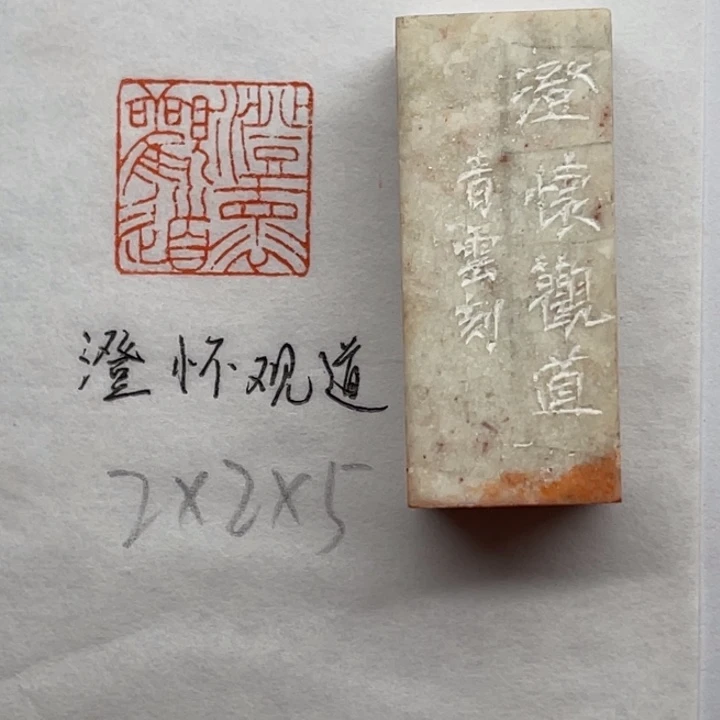 澄懷
觀道
澄怀观道
2×2×5
澄懷觀道
青雲刻